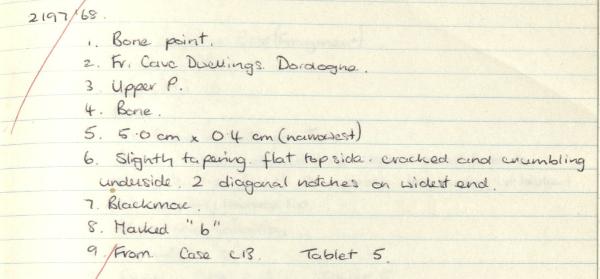 2197/'68.
1. Bone point.
2. Fr. Cave Dwellings. Dordogne.
3 Upper P.
4. Bone.
5. 5.0 cm x 0.4 cm (narrowest)
6. Slightly tapering. flat top side. cracked and crumbling
underside. 2 diagonal notches on widest end.
7. Blackmore.
8. Marked "b"
9. From Case C13. Tablet 5.